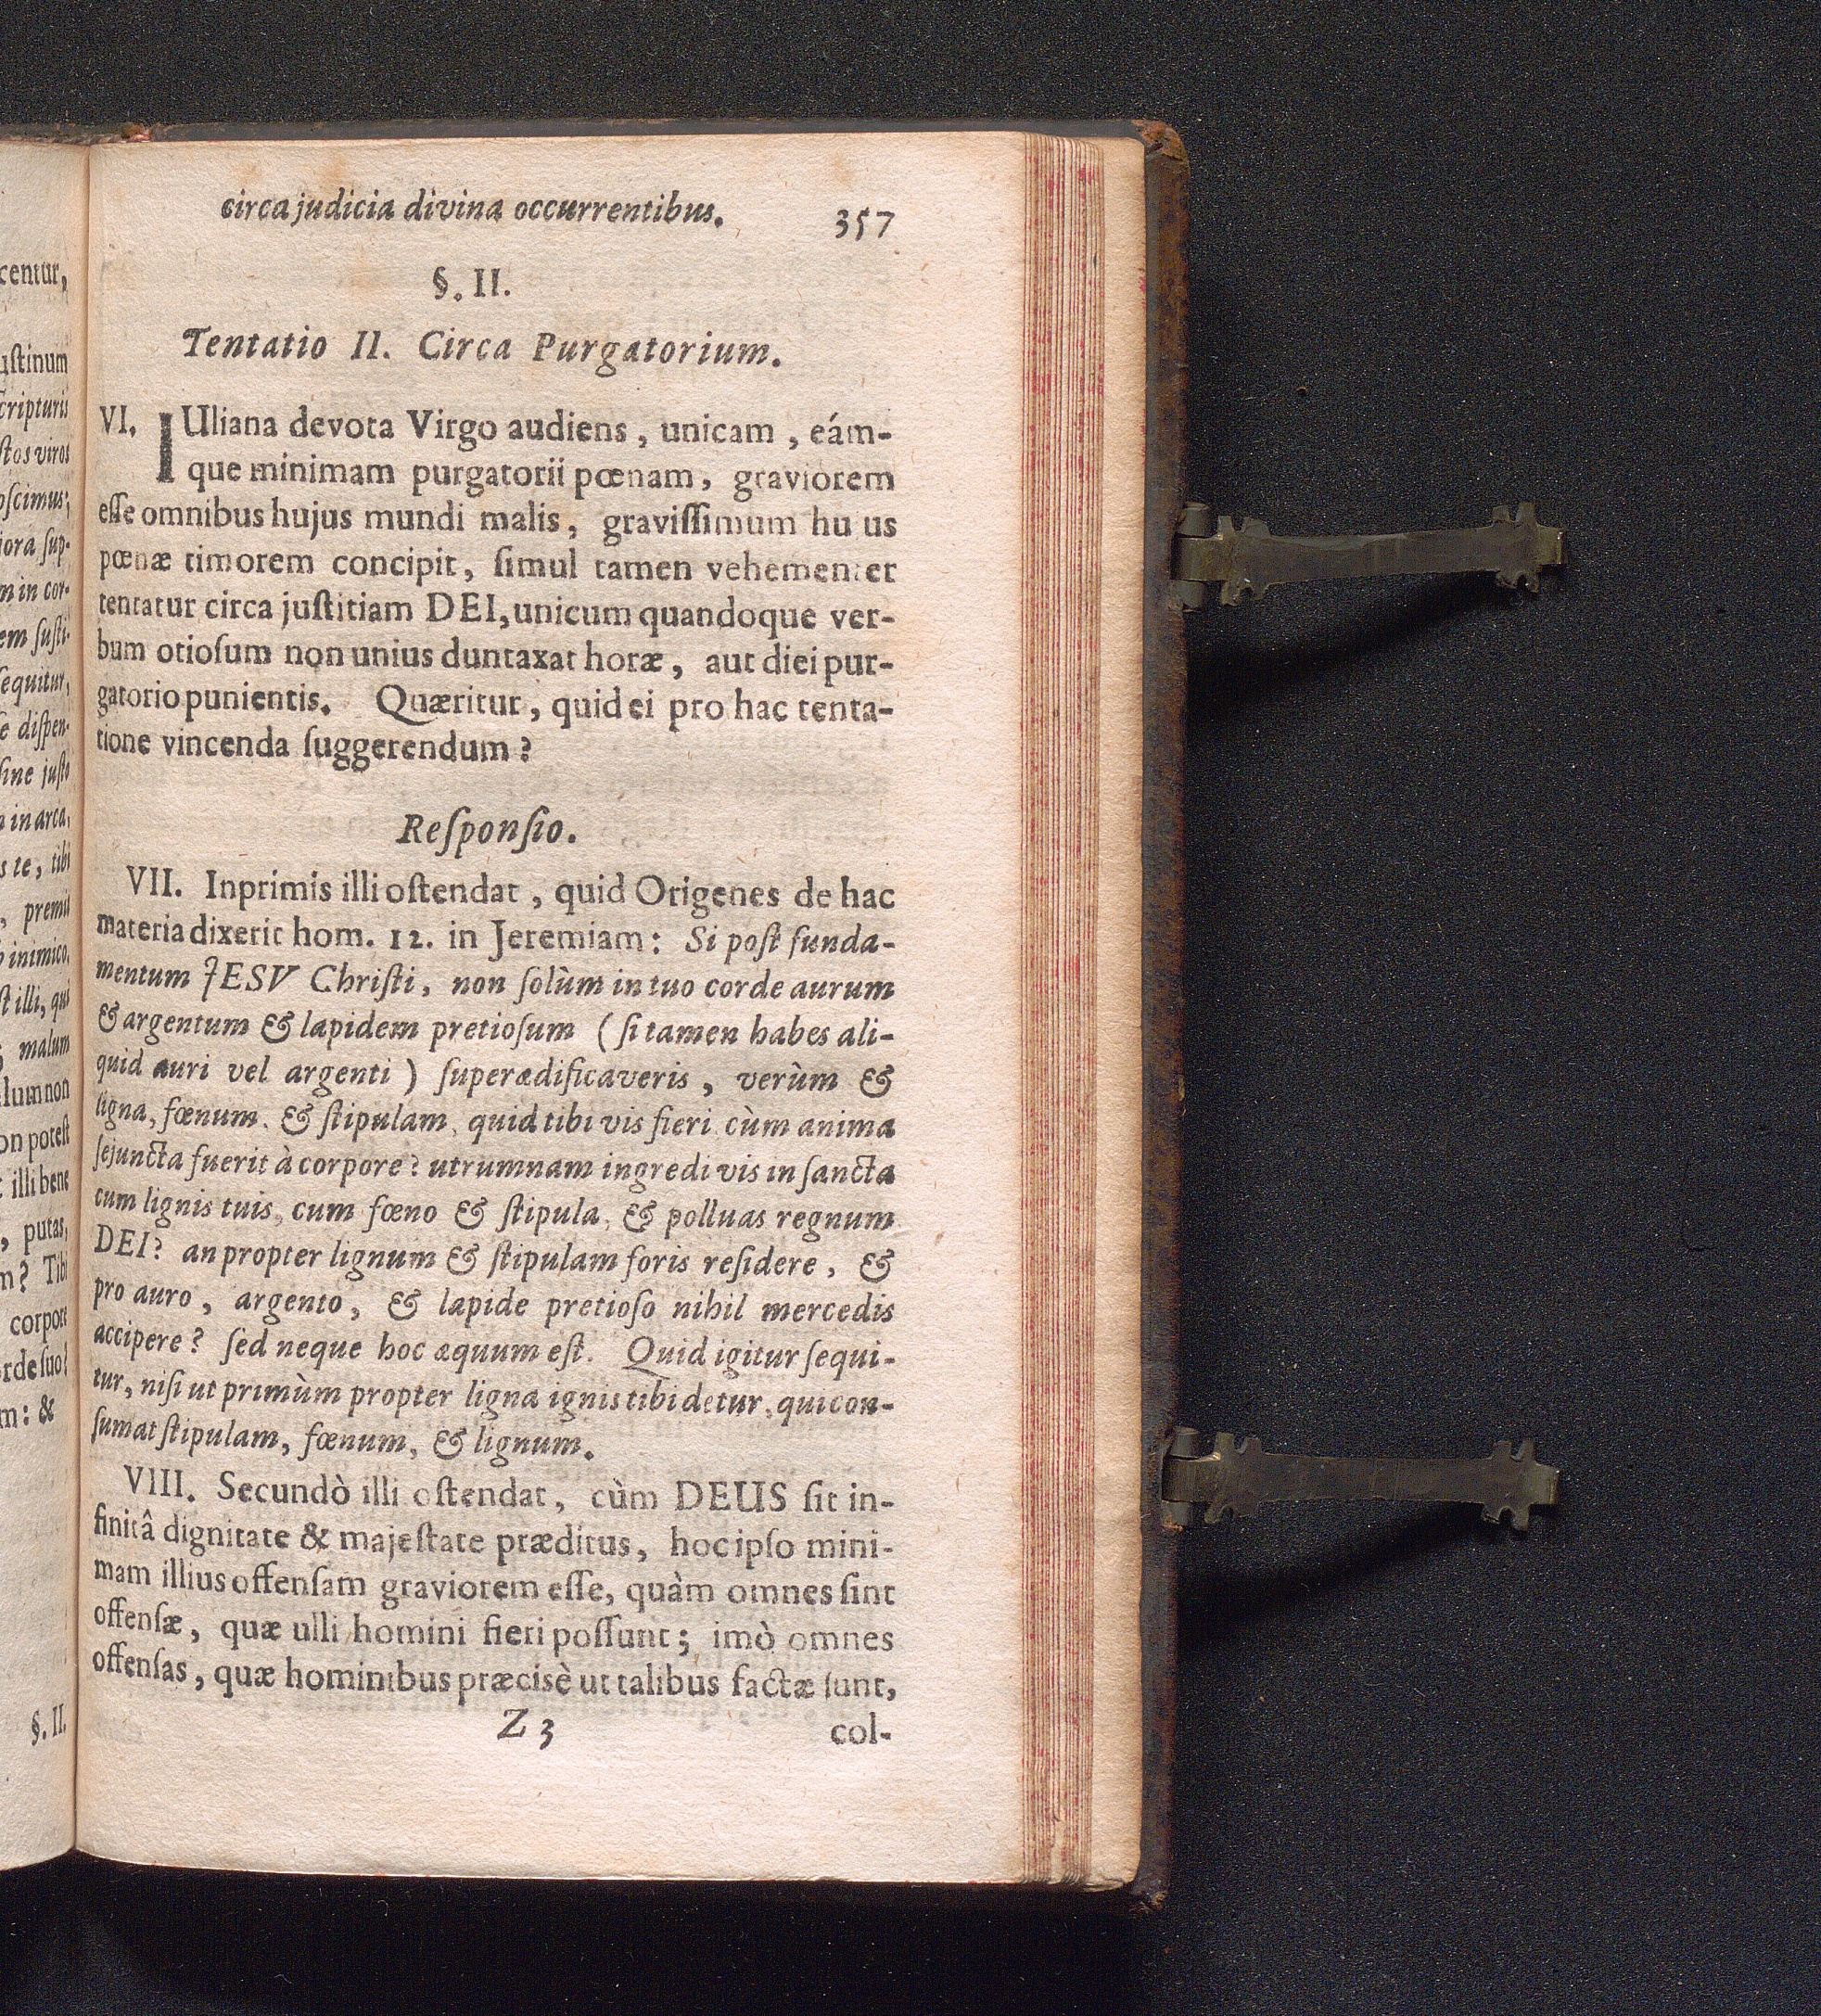 centur,
uſtinum
cripturis
ſtos viros
oſcimus;
iora ſup-
m in cor-
em ſuſti-
ſequitur,
ſe diſpen-
ſine juſto
in arca,
s te, tibi
, premit
inimico,
ſt illi, qui
; malum
lum non
on poteſt
illi bene
, putas,
m? Tibi
corpore
orde ſuo?
m: &
§. II.
circa judicia divina occurrentibus. 357
§. II.
Tentatio II. Circa Purgatorium.
VI. IUliana devota Virgo audiens, unicam, eám-
que minimam purgatorii pœnam, graviorem
eſſe omnibus hujus mundi malis, graviſſimum hu us
pœnæ timorem concipit, ſimul tamen vehementer
tentatur circa juſtitiam DEI, unicum quandoque ver-
bum otioſum non unius duntaxat horæ, aut diei pur-
gatorio punientis. Quæritur, quid ei pro hac tenta-
tione vincenda ſuggerendum?
Reſponſio.
VII. Inprimis illi oſtendat, quid Origenes de hac
materia dixerit hom. 12. in Jeremiam: Si poſt funda-
mentum JESV Chriſti, non ſolùm in tuo corde aurum
& argentum & lapidem pretioſum (ſi tamen habes ali-
quid auri vel argenti) ſuperædificaveris, verùm &
ligna, fœnum, & ſtipulam, quid tibi vis fieri cùm anima
ſejuncta fuerit à corpore? utrumnam ingredi vis in ſancta
cum lignis tuis, cum fœno & ſtipula, & polluas regnum
DEI? an propter lignum & ſtipulam foris reſidere, &
pro auro, argento, & lapide pretioſo nihil mercedis
accipere? ſed neque hoc æquum eſt. Quid igitur ſequi-
tur, niſi ut primùm propter ligna ignis tibi detur, qui con-
ſumat ſtipulam, fœnum, & lignum.
VIII. Secundò illi oſtendat, cùm DEUS ſit in-
finitâ dignitate & majeſtate præditus, hoc ipſo mini-
mam illius offenſam graviorem eſſe, quàm omnes ſint
offenſæ, quæ ulli homini fieri poſſunt; imò omnes
offenſas, quæ hominibus præcisè ut talibus factæ ſunt,
Z 3 col-